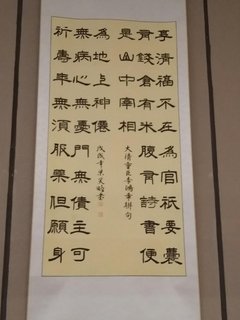 享清福不在為官祇要囊
有錢倉有米腹有詩書便
是山中宰相
大清重臣李鴻章聯句
祈壽年無須服藥但願身
無病心無憂門無債主可
為地上神僊
戊戌
書